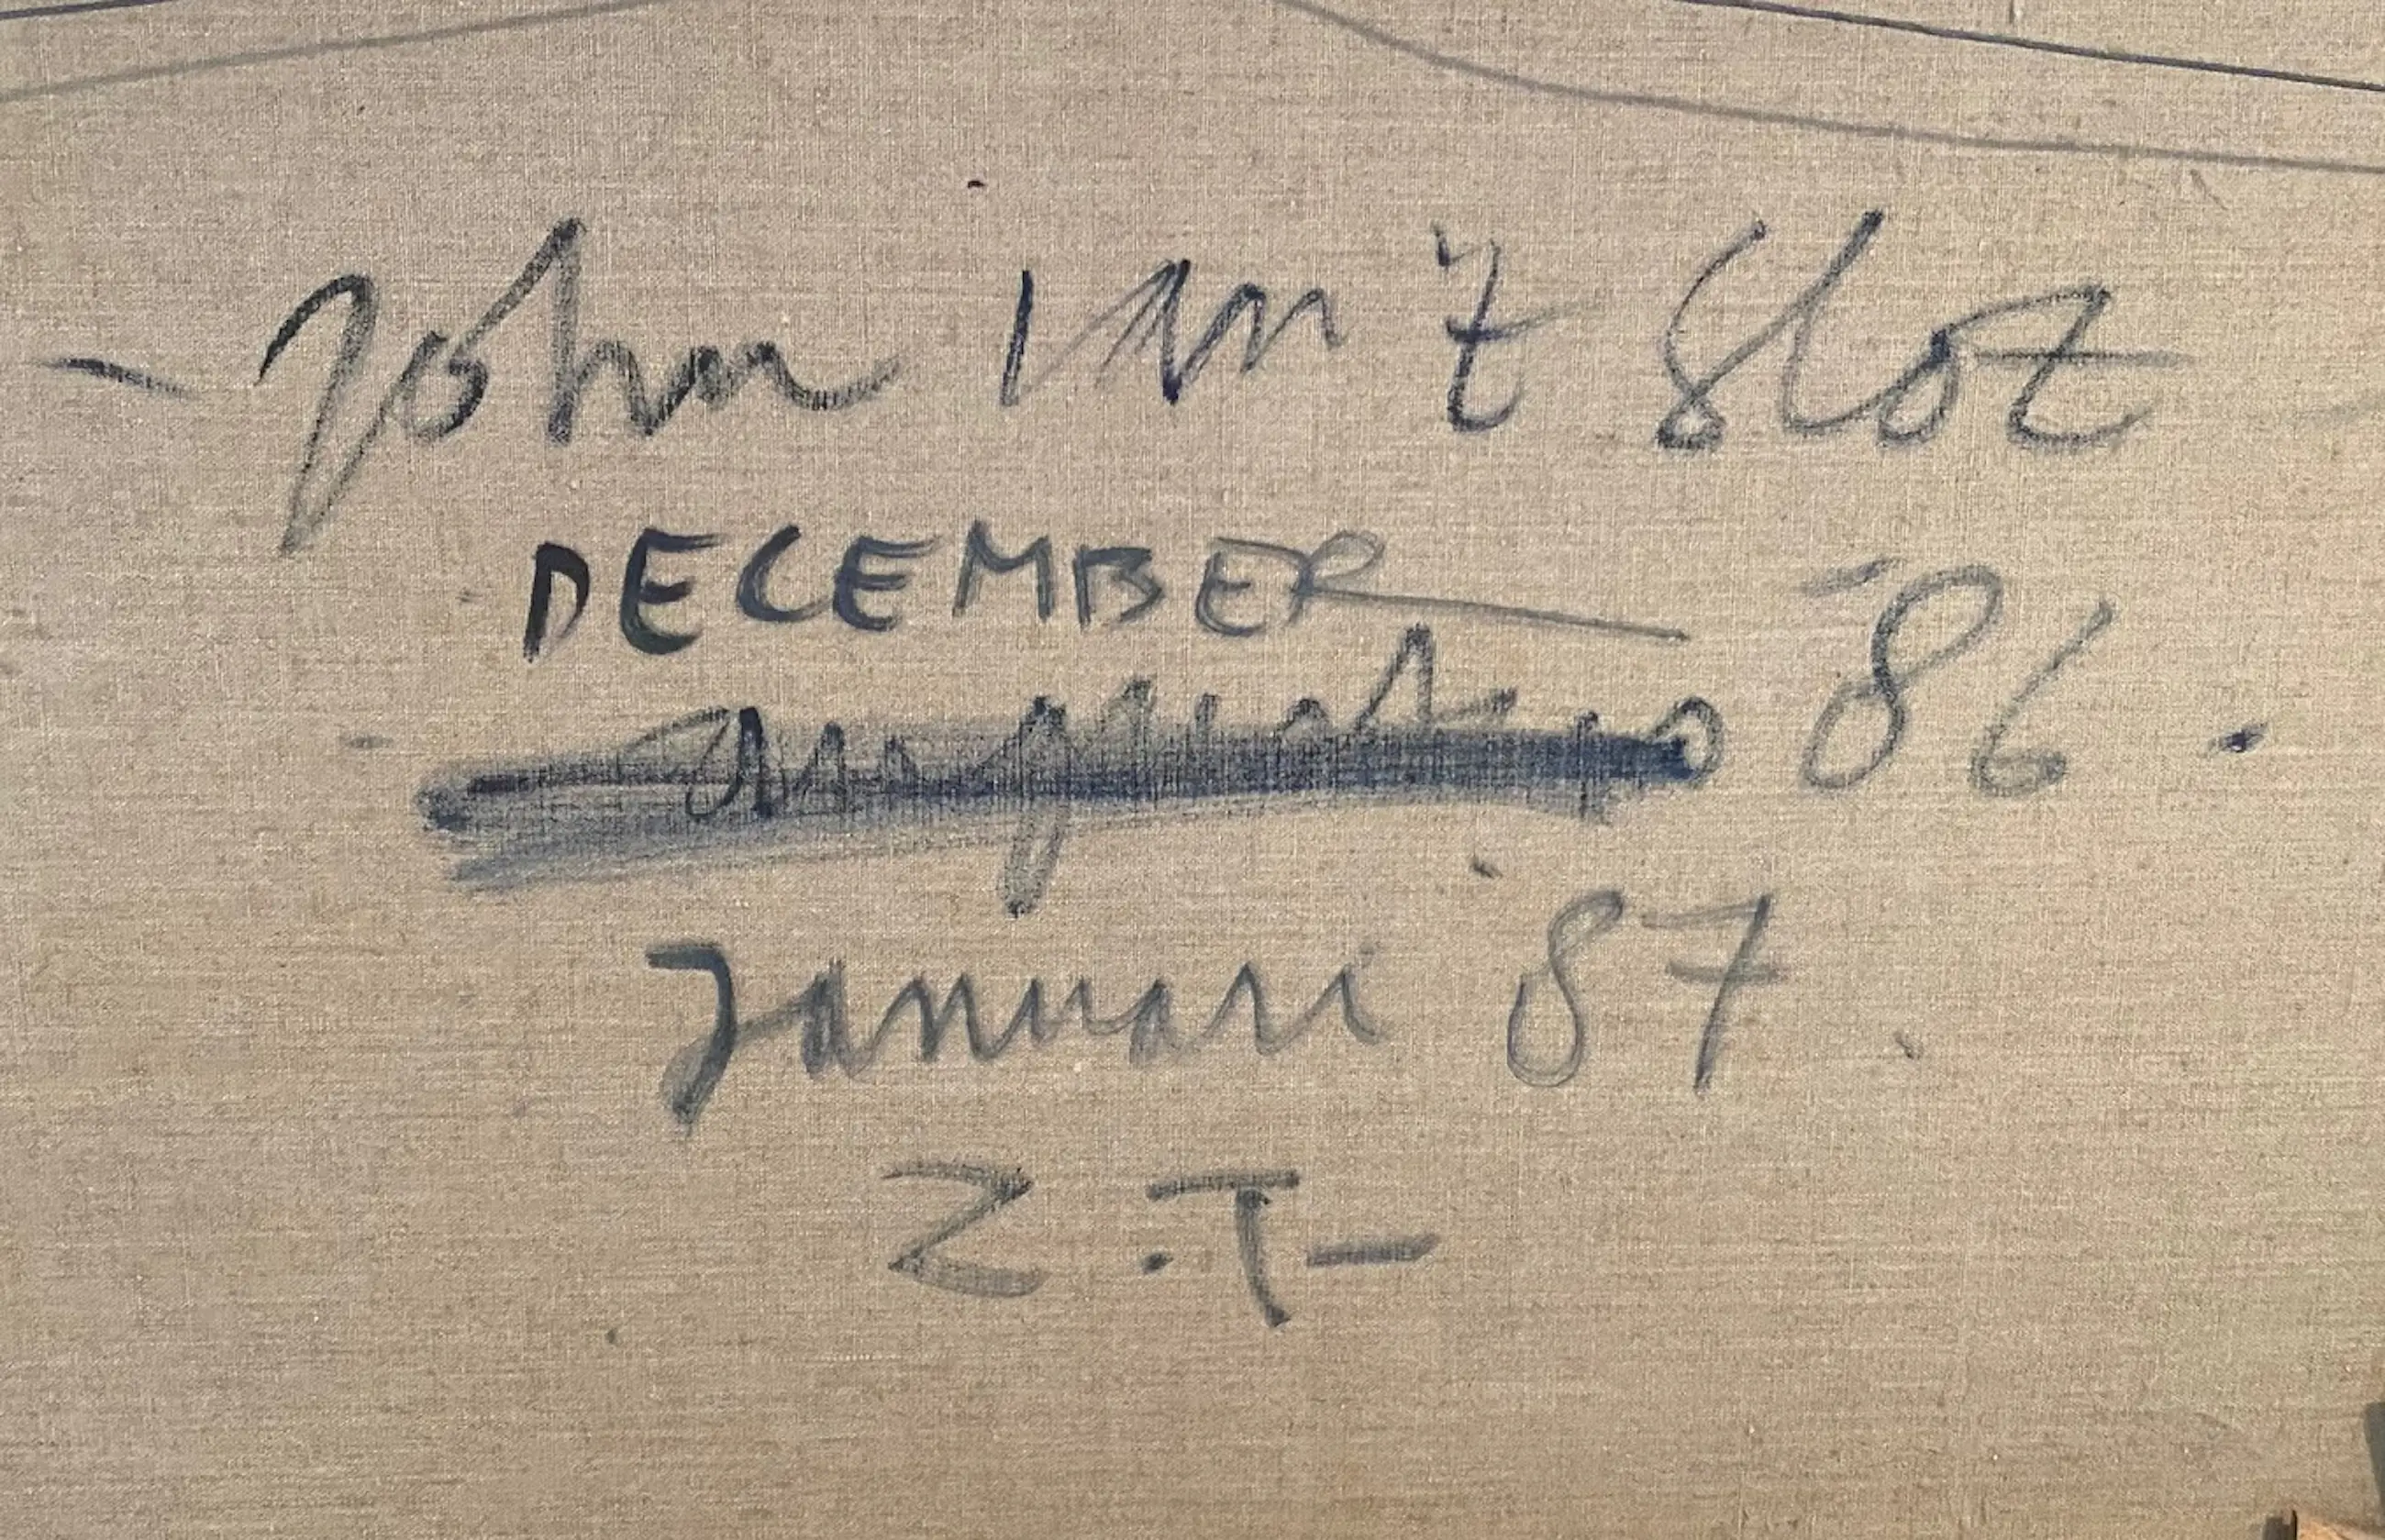 - John van 't Slot
DECEMBER
'86.
Januari '87.
Z.T-